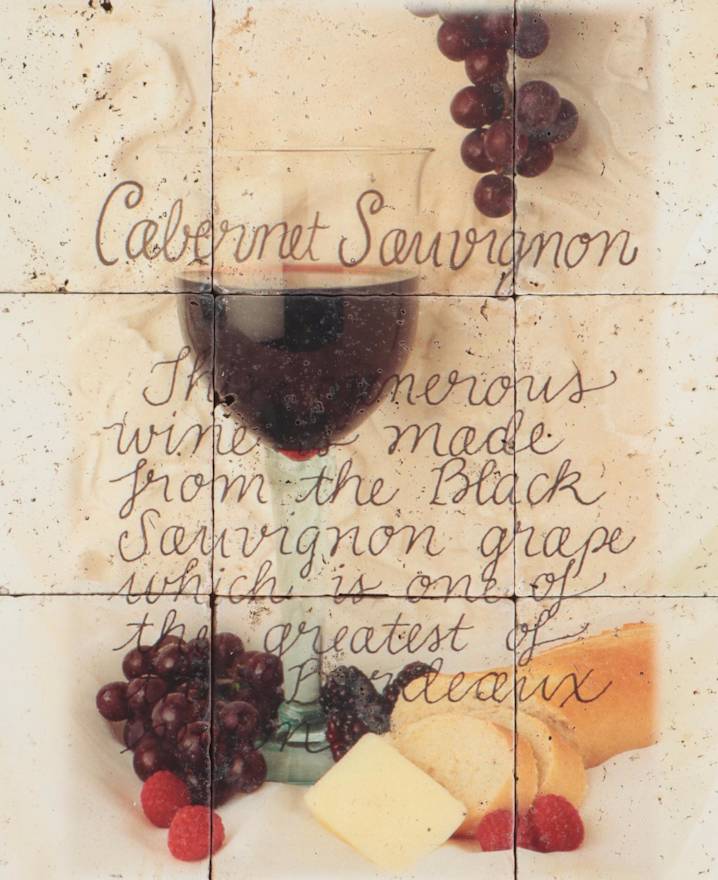 Cabernet Sauvignon
This generous
wine is made
from the Black
Sauvignon grape
which is one of
the greatest of
Bordeaux